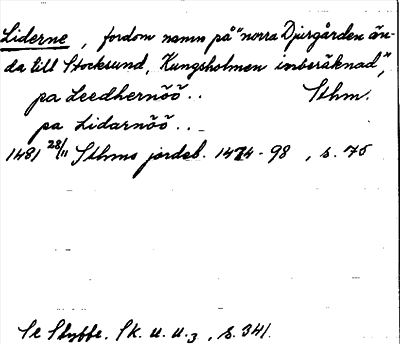 Liderne, fordom namn på "norra Djurgården än-
da till Stocksund, Kungsholmen inberäknad,"
pa Leedhernöö.. Sthm.
pa Lidarnöö..
1481 28/11 Sthms jordeb. 1474-98, s. 76
Se Styffe. Sk. u. u.3, s. 341.